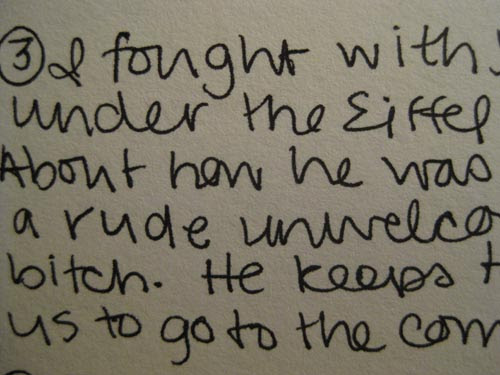 ③ I fought with
under the Eiffel
About how he was
a rude unwelco
bitch. He keeps t
us to go to the com